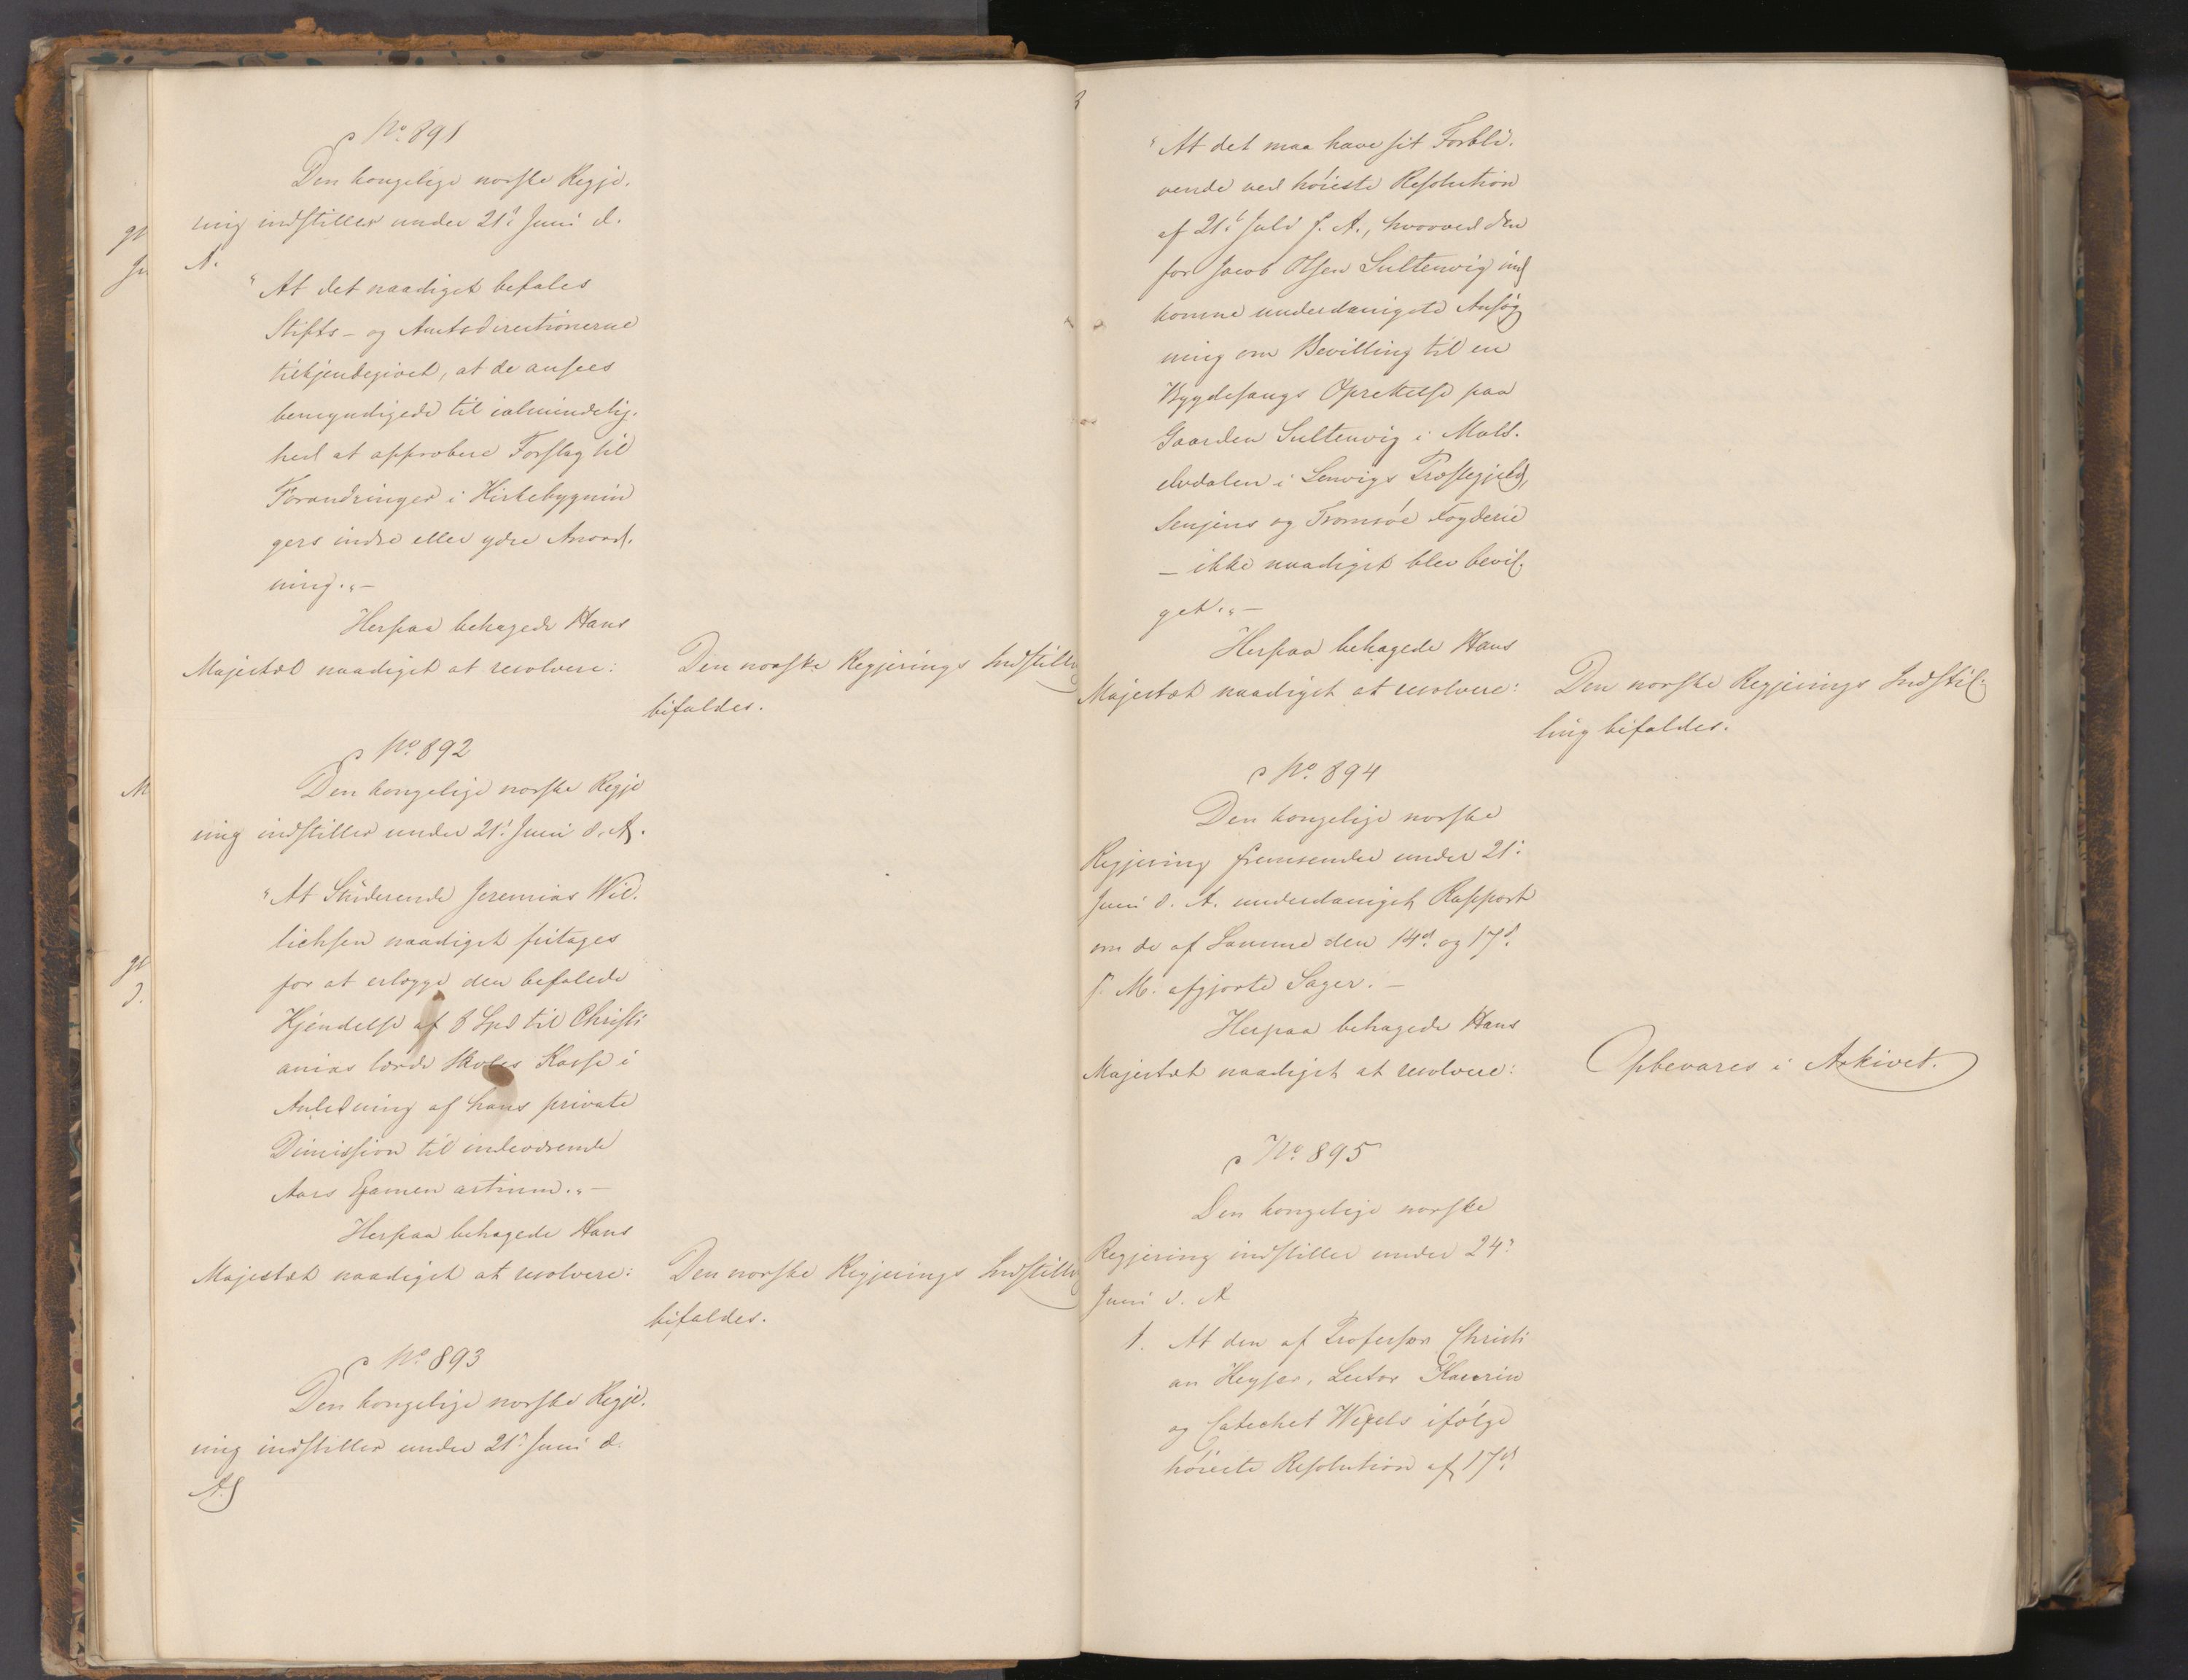 No. 891
Den kongelige norske Regje-
ring indstiller under 21. Juni d.
A.
"At det naadigst befales
Stifts- og Amtsdirectionerne
tilkjendegivet, at de ansees
bemyndigede til ialmindelig-
hed at approbere Forslag til
Forandringer i Kirkebygnin
gers indre eller ydre Anord-
ning."-
Herpaa behagede Hans
Majestæt naadigst at resolvere:
Den norske Regjerings Indstilling
bifaldes.
No. 892
Den kongelige norske Regje
ring indstiller under 21. Juni d. A.
"At Studerende Jeremias Wil-
lichsen naadigst fritages
for at erlægge den befalede
Kjendelse af 8 Spd til Christi
anias lærde Skoles Kasse i
Anledning af hans private
Dimission til indeværende
Aars Examen artium."-
Herpaa behagede Hans
Majestæt naadigst at resolvere:
Den norske Regjerings Indstilling
bifaldes.
No. 893
Den kongelige norske Regje-
ring indstiller under 21. Juni d.
A.
"At det maa have sit Forbli-
vende ved høieste Resolution
af 21. Juli f. A., hvorved den
for Jacob Olsen Sultenvig ind
komne underdanigste Ansøg
ning om Bevilling til en
Bygdefangs Oprettelse paa
Gaarden Sultenvig i Mals-
elvdalen i Lenvigs Præstegjeld,
Senjens og Tromsøe Fogderie
- ikke naadigst blev bevil-
get."-
Herpaa behagede Hans
Majestæt naadigst at resolvere:
Den norske Regjerings Indstil-
ling bifaldes.
No. 894
Den kongelige norske
Regjering fremsender under 21.
Juni d. A. underdanigst Rapport
om de af Samme den 14d. og 17d.
s. M. afgjorte Sager.-
Herpaa behagede Hans
Majestæt naadigst at resolvere:
Opbevares i Arkivet.
No. 895
Den kongelige norske
Regjering indstiller under 24.
Juni d. A
1. At den af Professor Christi
an Keyser, Lector Kaurin
og Catechet Wexels ifølge
høieste Resolution af 17d.